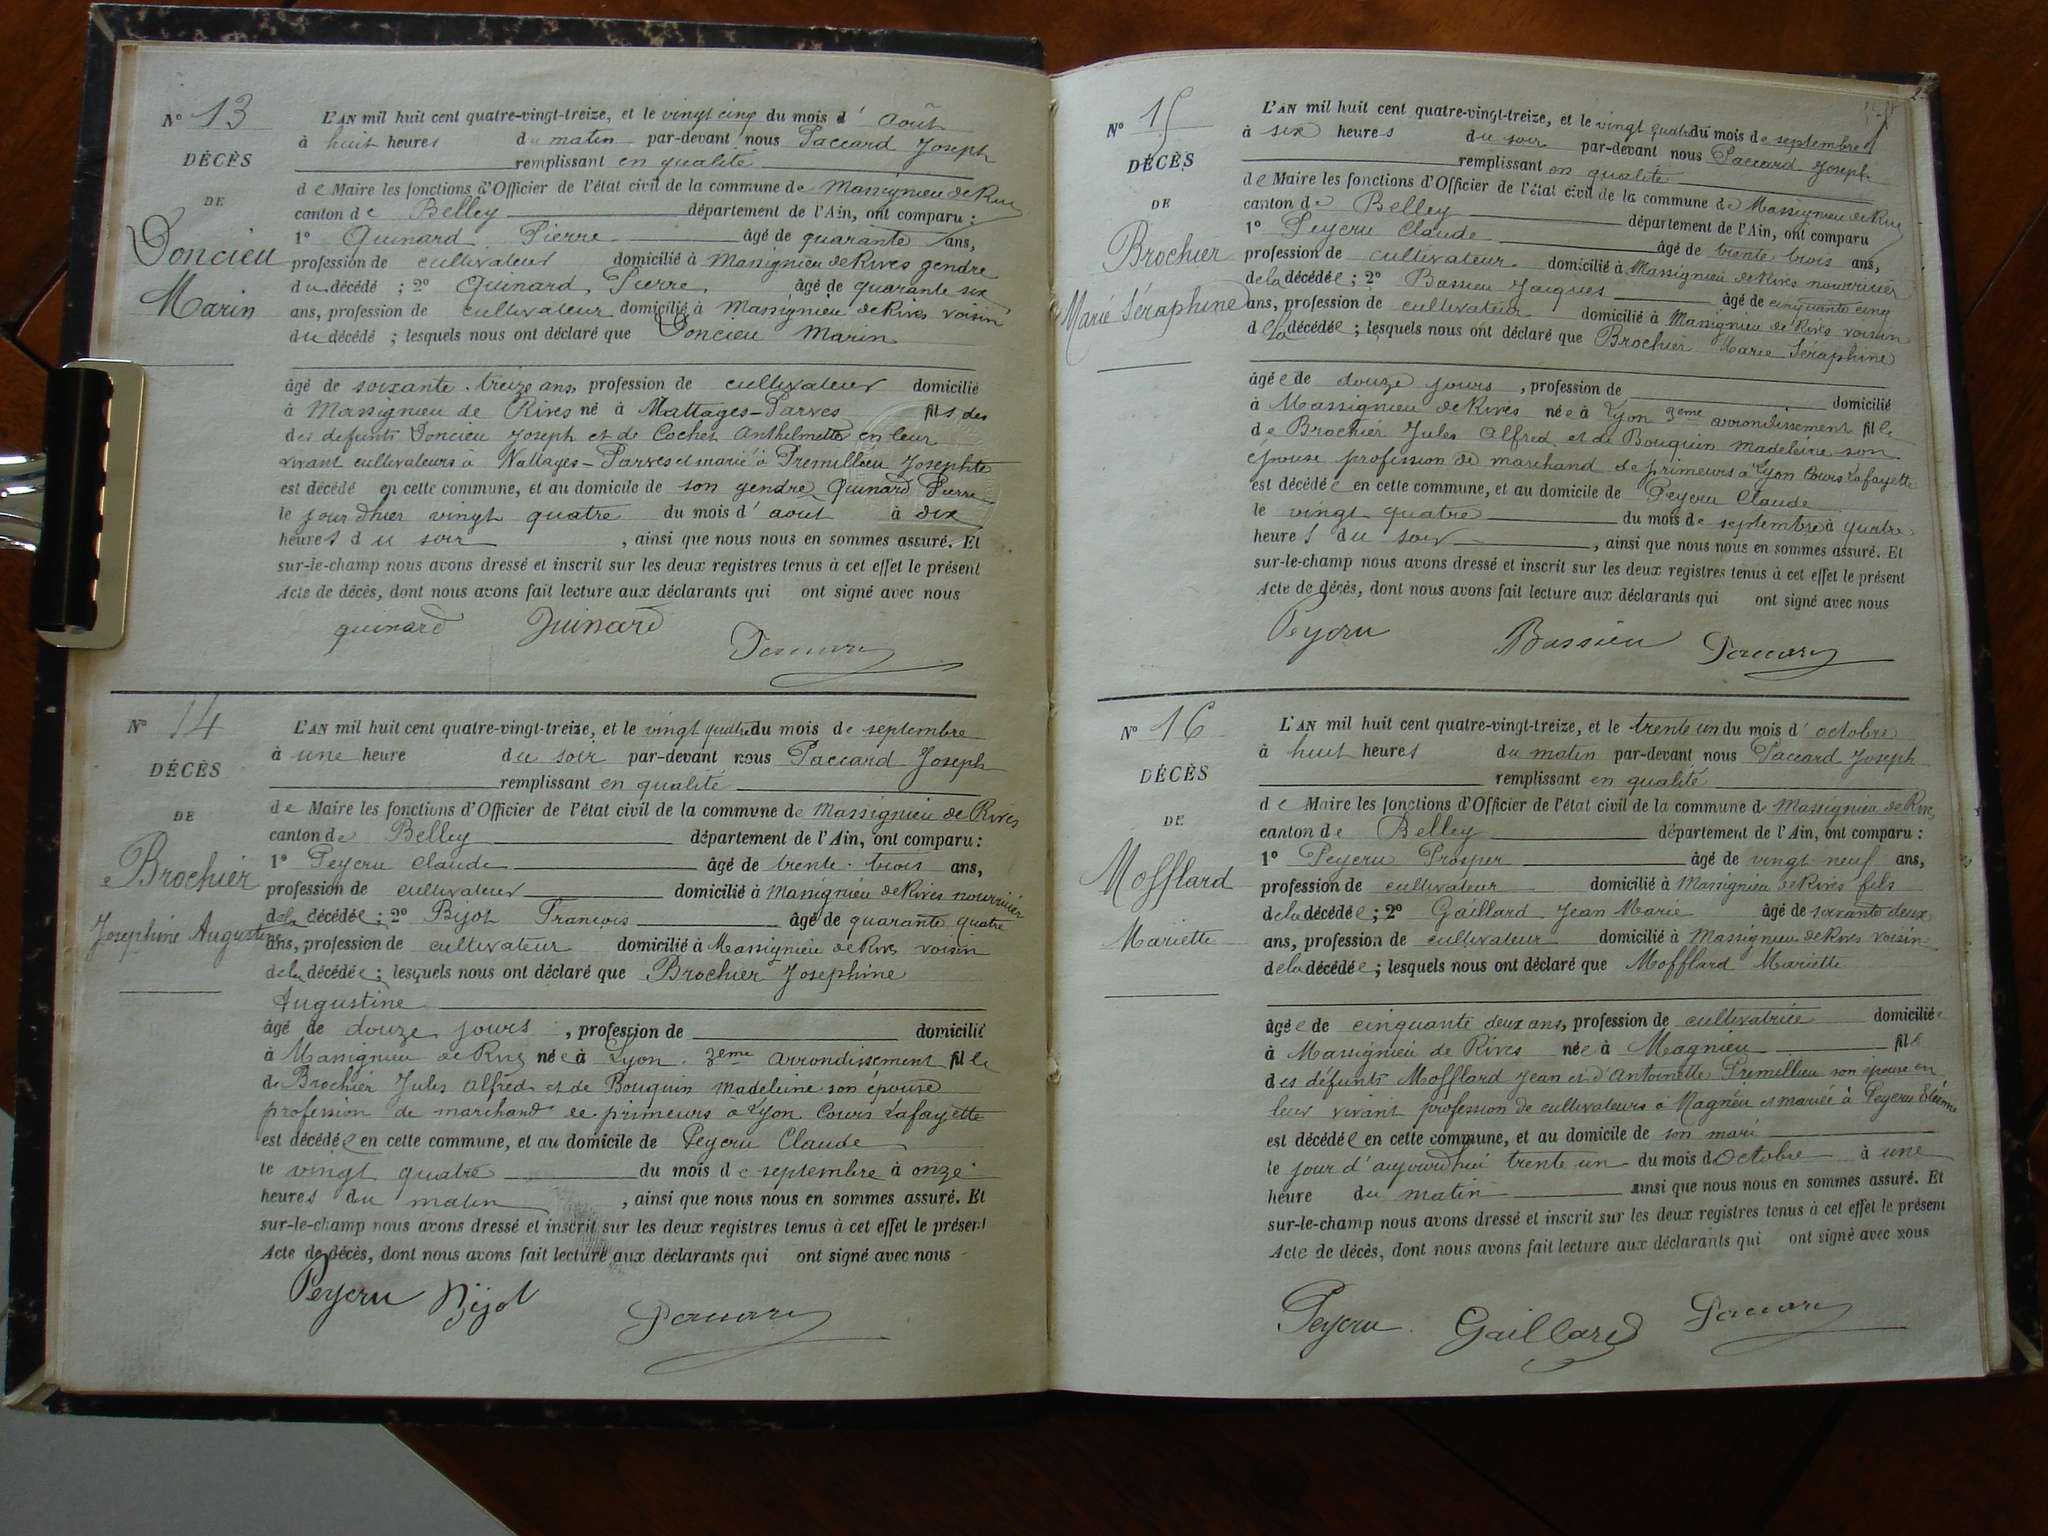 N° 13
DÉCÈS
DE
Doncieu
Marin
L'AN mil huit cent quatre-vingt-treize, et le vingt cinq du mois d'août
à huit heures du matin par-devant nous Paccard Joseph
remplissant en qualité
de Maire les fonctions d'Officier de l'état civil de la commune de Massignieu de Rives
canton de Belley département de l'Ain, ont comparu :
1° Quinard Pierre âgé de quarante ans,
profession de cultivateur domicilié à Massignieu de Rives gendre
du décédé ; 2° Quinard Pierre âgé de quarante six
ans, profession de cultivateur domicilié à Massignieu de Rives voisin
du décédé ; lesquels nous ont déclaré que Doncieu Marin
âgé de soixante-treize ans, profession de cultivateur domicilié
à Massignieu de Rives né à Nattages-Parves fils des
des defunts Doncieu Joseph et de Cochet Anthelmette en leur
vivant cultivateurs à Nattages-Parves et marié à Premillieu Josephte
est décédé en cette commune, et au domicile de son gendre Quinard Pierre
le jour d'hier vingt quatre du mois d'août à dix
heures du soir, ainsi que nous nous en sommes assuré. Et
sur-le-champ nous avons dressé et inscrit sur les deux registres tenus à cet effet le présent
Acte de décès, dont nous avons fait lecture aux déclarants qui ont signé avec nous
quinard Quinard Paccard
N° 14
DÉCÈS
DE
Brochier
Josephine Augustine
L'AN mil huit cent quatre-vingt-treize, et le vingt quatre du mois de septembre
à une heure du soir par-devant nous Paccard Joseph
remplissant en qualité
de Maire les fonctions d'Officier de l'état civil de la commune de Massignieu de Rives
canton de Belley département de l'Ain, ont comparu :
1° Peycru Claude âgé de trente-trois ans,
profession de cultivateur domicilié à Massignieu de Rives nourricier
de la décédée ; 2° Bijot François âgé de quarante quatre
ans, profession de cultivateur domicilié à Massignieu de Rives voisin
de la décédée ; lesquels nous ont déclaré que Brochier Josephine
Augustine
âgé de douze jours, profession de domicilié
à Massignieu de Rives née à Lyon 3eme arrondissement fille
de Brochier Jules Alfred et de Bouquin Madeleine son épouse
profession de marchand de primeurs à Lyon Cours Lafayette
est décédée en cette commune, et au domicile de Peycru Claude
le vingt quatre du mois de septembre à onze
heures du matin, ainsi que nous nous en sommes assuré. Et
sur-le-champ nous avons dressé et inscrit sur les deux registres tenus à cet effet le présent
Acte de décès, dont nous avons fait lecture aux déclarants qui ont signé avec nous
Peycru Bijot Paccard
N° 15
DÉCÈS
DE
Brochier
Marie Séraphine
L'AN mil huit cent quatre-vingt-treize, et le vingt quatre du mois de septembre
à six heures du soir par-devant nous Paccard Joseph
remplissant en qualité
de Maire les fonctions d'Officier de l'état civil de la commune de Massignieu de Rives
canton de Belley département de l'Ain, ont comparu
1° Peycru Claude âgé de trente trois ans,
profession de cultivateur domicilié à Massignieu de Rives nourricier
de la décédée ; 2° Bassieu Jacques âgé de cinquante cinq
ans, profession de cultivateur domicilié à Massignieu de Rives voisin
de la décédée ; lesquels nous ont déclaré que Brochier Marie Séraphine
âgée de douze jours, profession de domicilié
à Massignieu de Rives née à Lyon 3eme arrondissement fille
de Brochier Jules Alfred et de Bouquin Madeleine son
épouse profession de marchand de primeurs à Lyon Cours Lafayette
est décédée en cette commune, et au domicile de Peycru Claude
le vingt quatre du mois de septembre à quatre
heures du soir, ainsi que nous nous en sommes assuré. Et
sur-le-champ nous avons dressé et inscrit sur les deux registres tenus à cet effet le présent
Acte de décès, dont nous avons fait lecture aux déclarants qui ont signé avec nous
Peycru Bassieu Paccard
N° 16
DÉCÈS
DE
Mofflard
Mariette
L'AN mil huit cent quatre-vingt-treize, et le trente un du mois d'octobre
à huit heures du matin par-devant nous Paccard Joseph
remplissant en qualité
de Maire les fonctions d'Officier de l'état civil de la commune de Massignieu de Rives
canton de Belley département de l'Ain, ont comparu :
1° Peycru Prosper âgé de vingt neuf ans,
profession de cultivateur domicilié à Massignieu de Rives fils
de la décédée ; 2° Gaillard Jean Marie âgé de soixante deux
ans, profession de cultivateur domicilié à Massignieu de Rives voisin
de la décédée ; lesquels nous ont déclaré que Mofflard Mariette
âgée de cinquante deux ans, profession de cultivatrice domiciliée
à Massignieu de Rives née à Magnieu fille
des défunts Mofflard Jean et d'Antoinette Premillieu son épouse en
leur vivant profession de cultivateurs à Magnieu et mariée à Peycru Etienne
est décédée en cette commune, et au domicile de son mari
le jour d'aujourdhui trente un du mois d'octobre à une
heure du matin ainsi que nous nous en sommes assuré. Et
sur-le-champ nous avons dressé et inscrit sur les deux registres tenus à cet effet le présent
Acte de décès, dont nous avons fait lecture aux déclarants qui ont signé avec nous
Peycru Gaillard Paccard